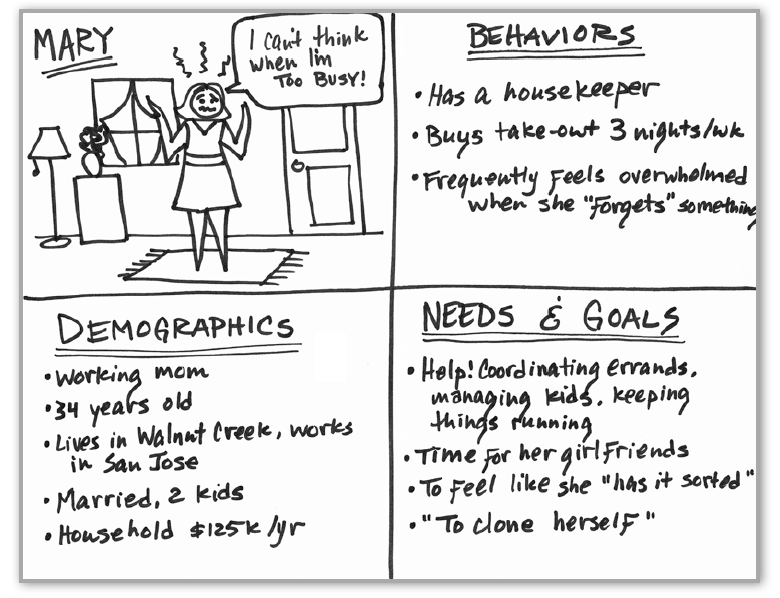 MARY
I can't think
when I'm
Too Busy!
BEHAVIORS
• Has a housekeeper
• Buys take-out 3 nights/wk
• Frequently feels overwhelmed
when she "forgets" something
DEMOGRAPHICS
• Working mom
• 34 years old
• Lives in Walnut Creek, works
in San Jose
• Married, 2 kids
• Household $125k/yr
NEEDS & GOALS
• Help! Coordinating errands,
managing kids, keeping
things running
• Time for her girlfriends
• To feel like she "has it sorted"
• "To clone herself"